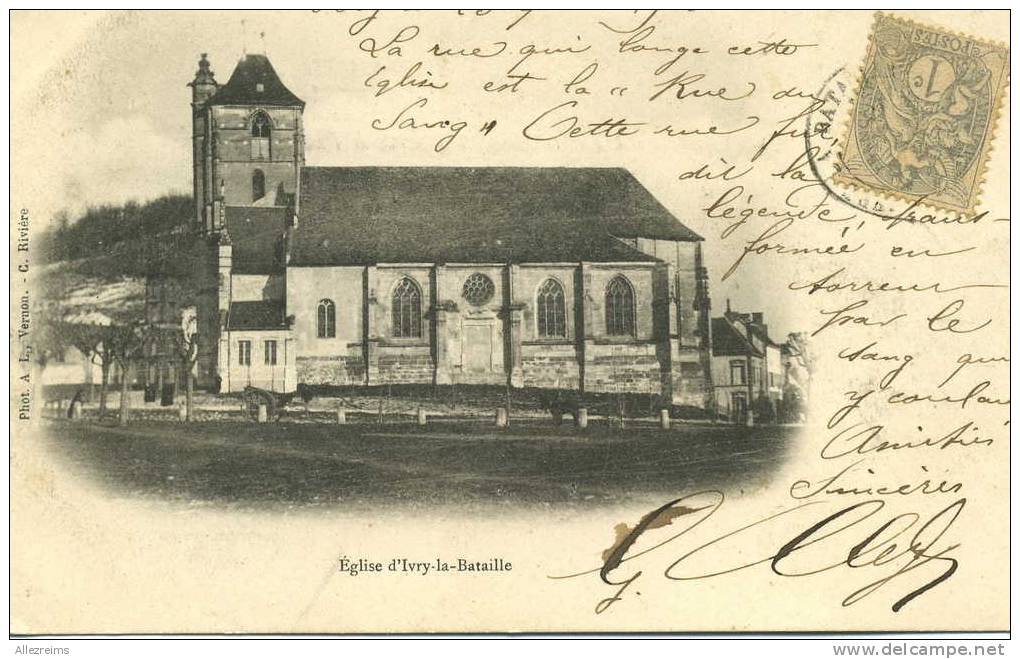 La rue qui longe cette
Eglise est la "Rue du
Sang" Cette rue fut,
dit la
légende, trans-
formée en
torrent
par le
sang qui
y coulait
Amitiés
Sincères
POSTES
1c
BATA
Phot. A. L., Vernon. - C. Rivière
Église d'Ivry-la-Bataille
Allezreims
www.delcampe.net